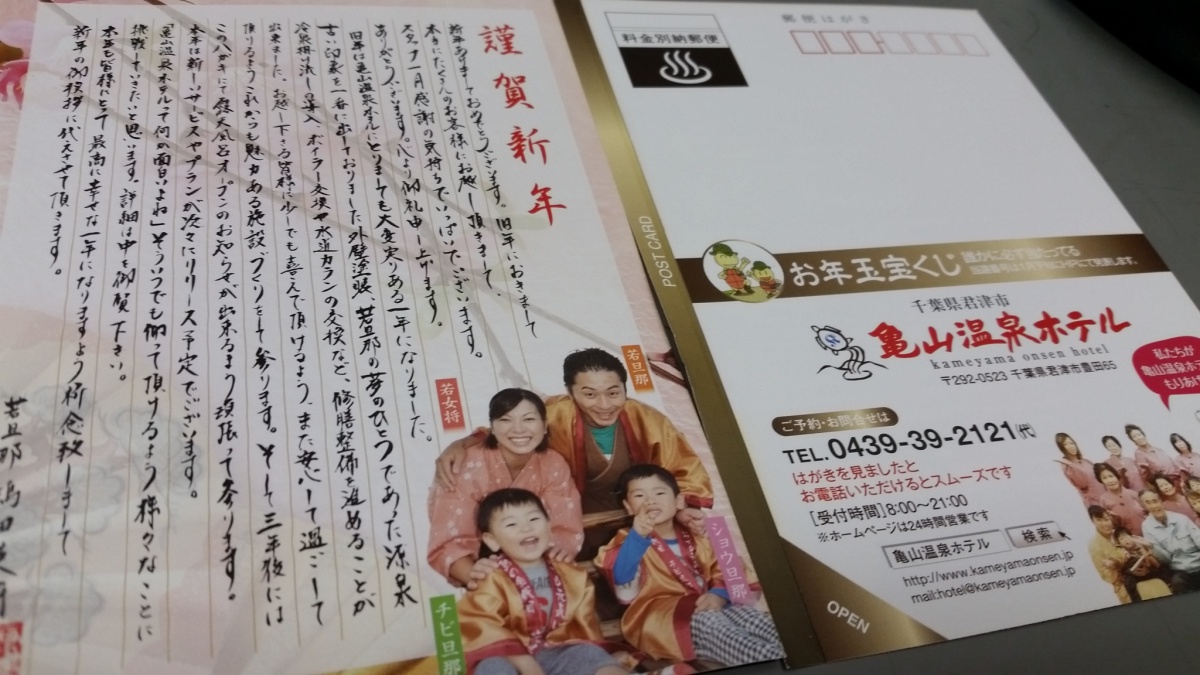 謹賀新年
新年あけましておめでとうございます。旧年におきまして
本当にたくさんのお客様にお越し頂きまして、
スタッフ一同感謝の気持ちでいっぱいでございます。
ありがとうございます。心より御礼申し上げます。
旧年は亀山温泉ホテルにとりましても大変実りある一年になりました。
古い印象を一番に出しておりました外壁塗装、若旦那の夢のひとつであった源泉
冷泉掛け流しの導入、ボイラー交換や水道カランの交換など、修繕整備を進めることが
出来ました。お越し下さる皆様に少しでも喜んで頂けるよう、また安心して過ごして
頂けるようこれからも魅力ある施設づくりをして参ります。そして三年後には
このハガキにて露天風呂オープンのお知らせが出来るよう頑張って参ります。
本年は新しいサービスやプランが次々にリリース予定でございます。
「亀山温泉ホテルって何か面白いよね」そういつでも仰って頂けるよう様々なことに
挑戦していきたいと思います。詳細は中を御覧下さい。
本年も皆様にとって最高に幸せな一年になりますよう祈念致しまして
新年の御挨拶に代えさせて頂きます。
若旦那
若女将
若旦那
チビ旦那
ショウ旦那
郵便はがき
料金別納郵便
POST CARD
お年玉宝くじ
誰かに必ず当たってる
千葉県君津市
亀山温泉ホテル
kameyama onsen hotel
〒292-0523 千葉県君津市豊田65
私たちが
亀山温泉ホテ
もりあげ
ご予約・お問合せは
TEL.0439-39-2121(代)
はがきを見ましたと
お電話いただけるとスムーズです
[受付時間]8:00〜21:00
※ホームページは24時間営業です
亀山温泉ホテル 検索
http://www.kameyamaonsen.jp
mail:hotel@kameyamaonsen.jp
OPEN